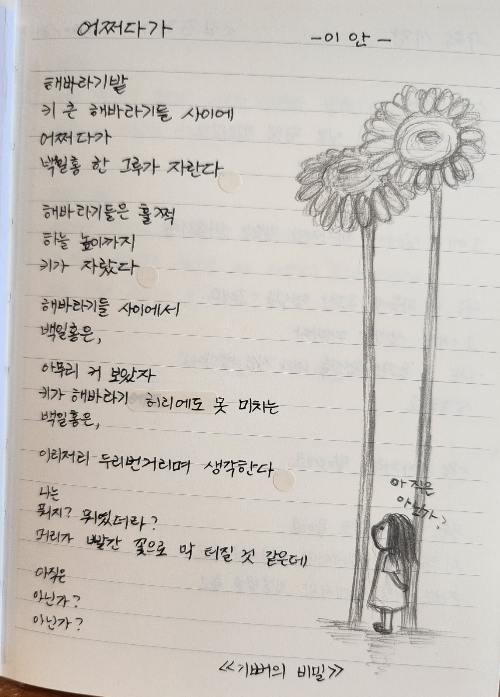 어쩌다가
-이 안-
해바라기밭
키 큰 해바라기들 사이에
어쩌다가
백일홍 한 그루가 자란다
해바라기들은 훌쩍
하늘 높이까지
키가 자랐다
해바라기들 사이에서
백일홍은,
아무리 커 보았자
키가 해바라기 허리에도 못 미치는
백일홍은,
이리저리 두리번거리며 생각한다
나는
뭐지? 뭐였더라?
머리가 빨간 꽃으로 막 터질 것 같은데
아직은
아닌가?
아닌가?
아직은
아닌가?
《기뻐의 비밀》